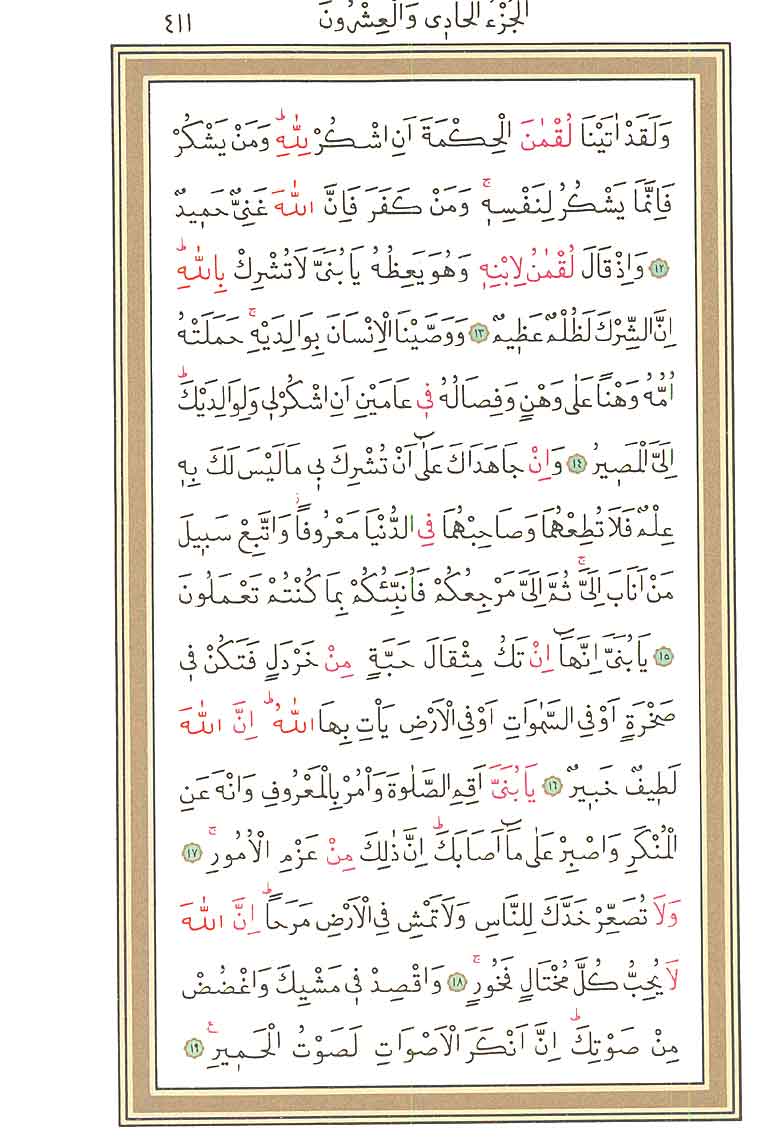 الجُزْءُ الحَادِى وَالْعِشْرُونَ ٤١١
وَلَقَدْ اٰتَيْنَا لُقْمٰنَ الْحِكْمَةَ اَنِ اشْكُرْ لِلّٰهِ ؕ وَمَنْ يَشْكُرْ
فَاِنَّمَا يَشْكُرُ لِنَفْسِهٖ ۚ وَمَنْ كَفَرَ فَاِنَّ اللّٰهَ غَنِىٌّ حَمٖيدٌ
١٢ وَاِذْ قَالَ لُقْمٰنُ لِابْنِهٖ وَهُوَ يَعِظُهُ يَا بُنَىَّ لَا تُشْرِكْ بِاللّٰهِ ؕ
اِنَّ الشِّرْكَ لَظُلْمٌ عَظٖيمٌ ١٣ وَوَصَّيْنَا الْاِنْسَانَ بِوَالِدَيْهِ ۚ حَمَلَتْهُ
اُمُّهُ وَهْنًا عَلٰى وَهْنٍ وَفِصَالُهُ فٖى عَامَيْنِ اَنِ اشْكُرْ لٖى وَلِوَالِدَيْكَ ؕ
اِلَىَّ الْمَصٖيرُ ١٤ وَاِنْ جَاهَدَاكَ عَلٰٓى اَنْ تُشْرِكَ بٖى مَا لَيْسَ لَكَ بِهٖ
عِلْمٌ فَلَا تُطِعْهُمَا وَصَاحِبْهُمَا فِى الدُّنْيَا مَعْرُوفًا ؗ وَاتَّبِعْ سَبٖيلَ
مَنْ اَنَابَ اِلَىَّ ۚ ثُمَّ اِلَىَّ مَرْجِعُكُمْ فَاُنَبِّئُكُمْ بِمَا كُنْتُمْ تَعْمَلُونَ
١٥ يَا بُنَىَّ اِنَّهَٓا اِنْ تَكُ مِثْقَالَ حَبَّةٍ مِنْ خَرْدَلٍ فَتَكُنْ فٖى
صَخْرَةٍ اَوْ فِى السَّمٰوَاتِ اَوْ فِى الْاَرْضِ يَاْتِ بِهَا اللّٰهُ ؕ اِنَّ اللّٰهَ
لَطٖيفٌ خَبٖيرٌ ١٦ يَا بُنَىَّ اَقِمِ الصَّلٰوةَ وَاْمُرْ بِالْمَعْرُوفِ وَانْهَ عَنِ
الْمُنْكَرِ وَاصْبِرْ عَلٰى مَٓا اَصَابَكَ ؕ اِنَّ ذٰلِكَ مِنْ عَزْمِ الْاُمُورِ ۚ ١٧
وَلَا تُصَعِّرْ خَدَّكَ لِلنَّاسِ وَلَا تَمْشِ فِى الْاَرْضِ مَرَحًا ؕ اِنَّ اللّٰهَ
لَا يُحِبُّ كُلَّ مُخْتَالٍ فَخُورٍ ۚ ١٨ وَاقْصِدْ فٖى مَشْيِكَ وَاغْضُضْ
مِنْ صَوْتِكَ ؕ اِنَّ اَنْكَرَ الْاَصْوَاتِ لَصَوْتُ الْحَمٖيرِ ع ١٩